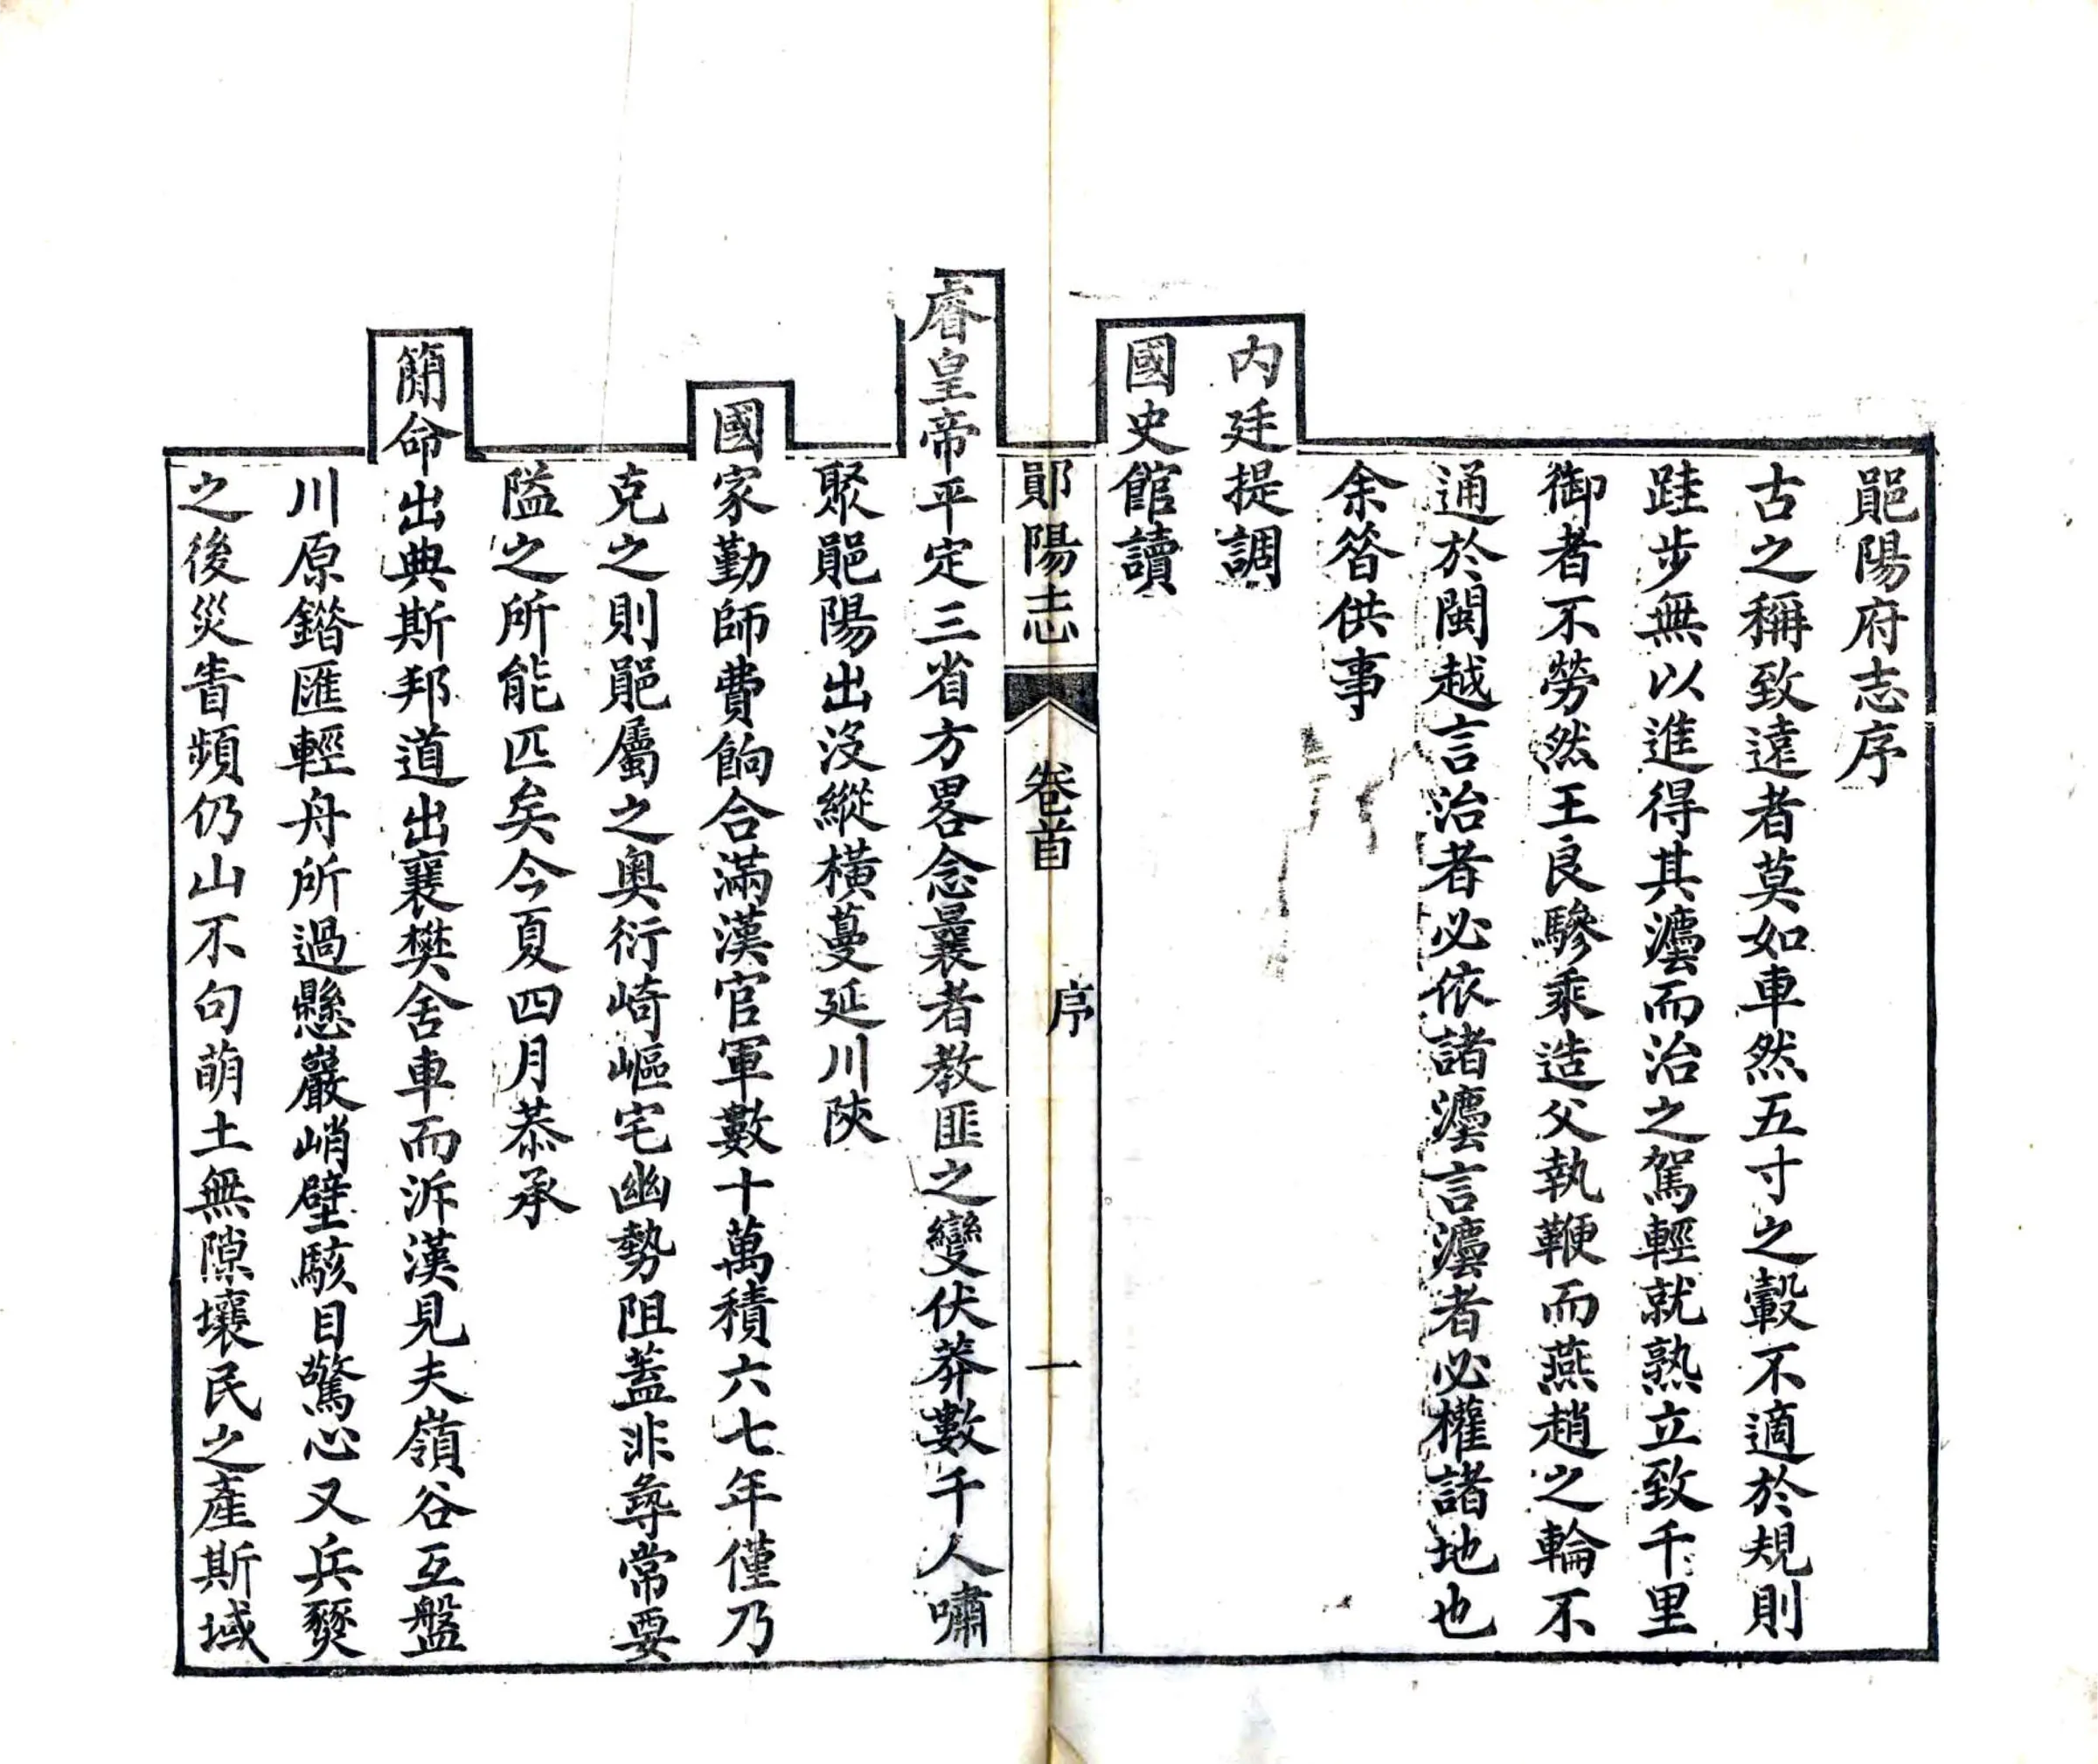 鄖陽府志序
古之稱致遠者莫如車然五寸之轂不適於規則
跬步無以進得其灋而治之駕輕就熟立致千里
御者不勞然王良驂乘造父執鞭而燕趙之輪不
通於閩越言治者必依諸灋言灋者必權諸地也
余昝供事
内廷提調
國史館讀
鄖陽志 卷首 序 一
睿皇帝平定三省方畧念曩者教匪之變伏莽數千人嘯
聚鄖陽出沒縱橫蔓延川陝
國家勤師費餉合滿漢官軍數十萬積六七年僅乃
克之則鄖屬之奧衍崎嶇宅幽勢阻葢非尋常要
隘之所能匹矣今夏四月恭承
簡命出典斯邦道出襄樊舍車而泝漢見夫嶺谷互盤
川原錯匯輕舟所過懸巖峭壁駭目驚心又兵燹
之後災眚頻仍山不句萌土無隙壤民之產斯域